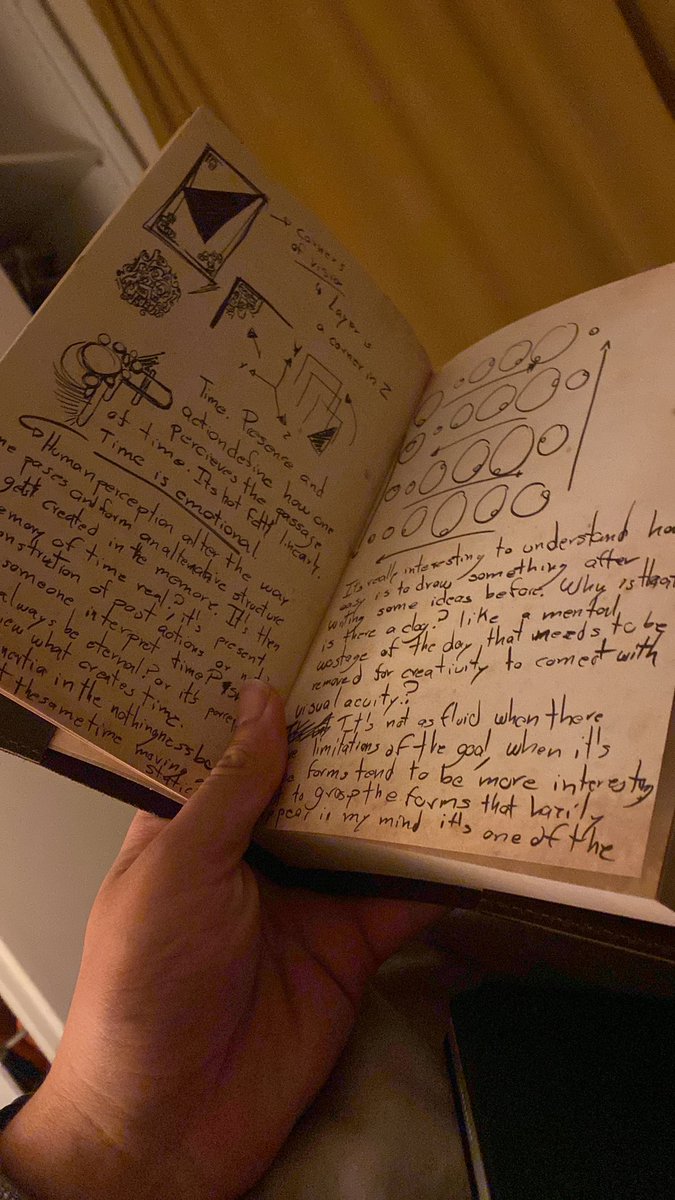 → Corners
of vision
4 Layers
a corner in Z
Y
X
Z
Time. Presence and
action define how one
percieves the passage
of time. Its not fully linearly.
Time is emotional
→ Human perception alter the way
pases and form an alternative structure
gets created in the memore. It's then
memory of time real? it's present,
construction of past actions or
someone interpret time?
always be eternal? or its
view what creates time.
in the nothingness
at the same time moving
static
It's really interesting to understand how
easy is to draw something after
writing some ideas before. Why is that
is there a clog? like a mental
wastage of the day that needs to be
removed for creativity to connect with
visual acuity?
It's not as fluid when there
limitations of the goal, when it's
forms tend to be more interesting
to grasp the forms that barily
in my mind it's one of the